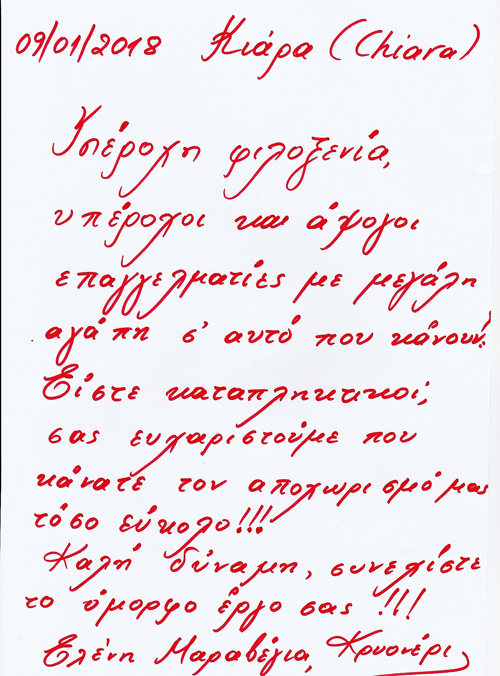 09/01/2018 Κιάρα (Chiara)
Υπέροχη φιλοξενία,
υπέροχοι και άψογοι
επαγγελματίες με μεγάλη
αγάπη σ' αυτό που κάνουν.
Είστε καταπληκτικοί,
σας ευχαριστούμε που
κάνατε τον αποχωρισμό μας
τόσο εύκολο!!!
Καλή δύναμη, συνεχίστε
το όμορφο έργο σας !!!
Ελένη Μαραβέγια, Κρυονέρι